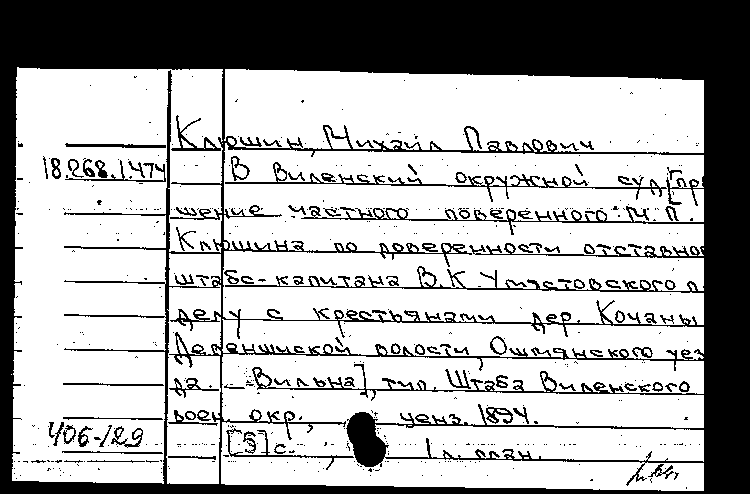 Клюшин, Михаил Павлович
18.268.1.474 В Виленский окружной суд [про
шение частного поверенного М.П.
Клюшина по доверенности отставно
штабс-капитана В.К. Умястовского п
делу с крестьянами дер. Кочаны
Девенишской волости, Ошмянского уез
да. Вильна], тип. Штаба Виленского
воен. окр., ценз. 1894.
406-/29
[5] с. ; 1 л. план.